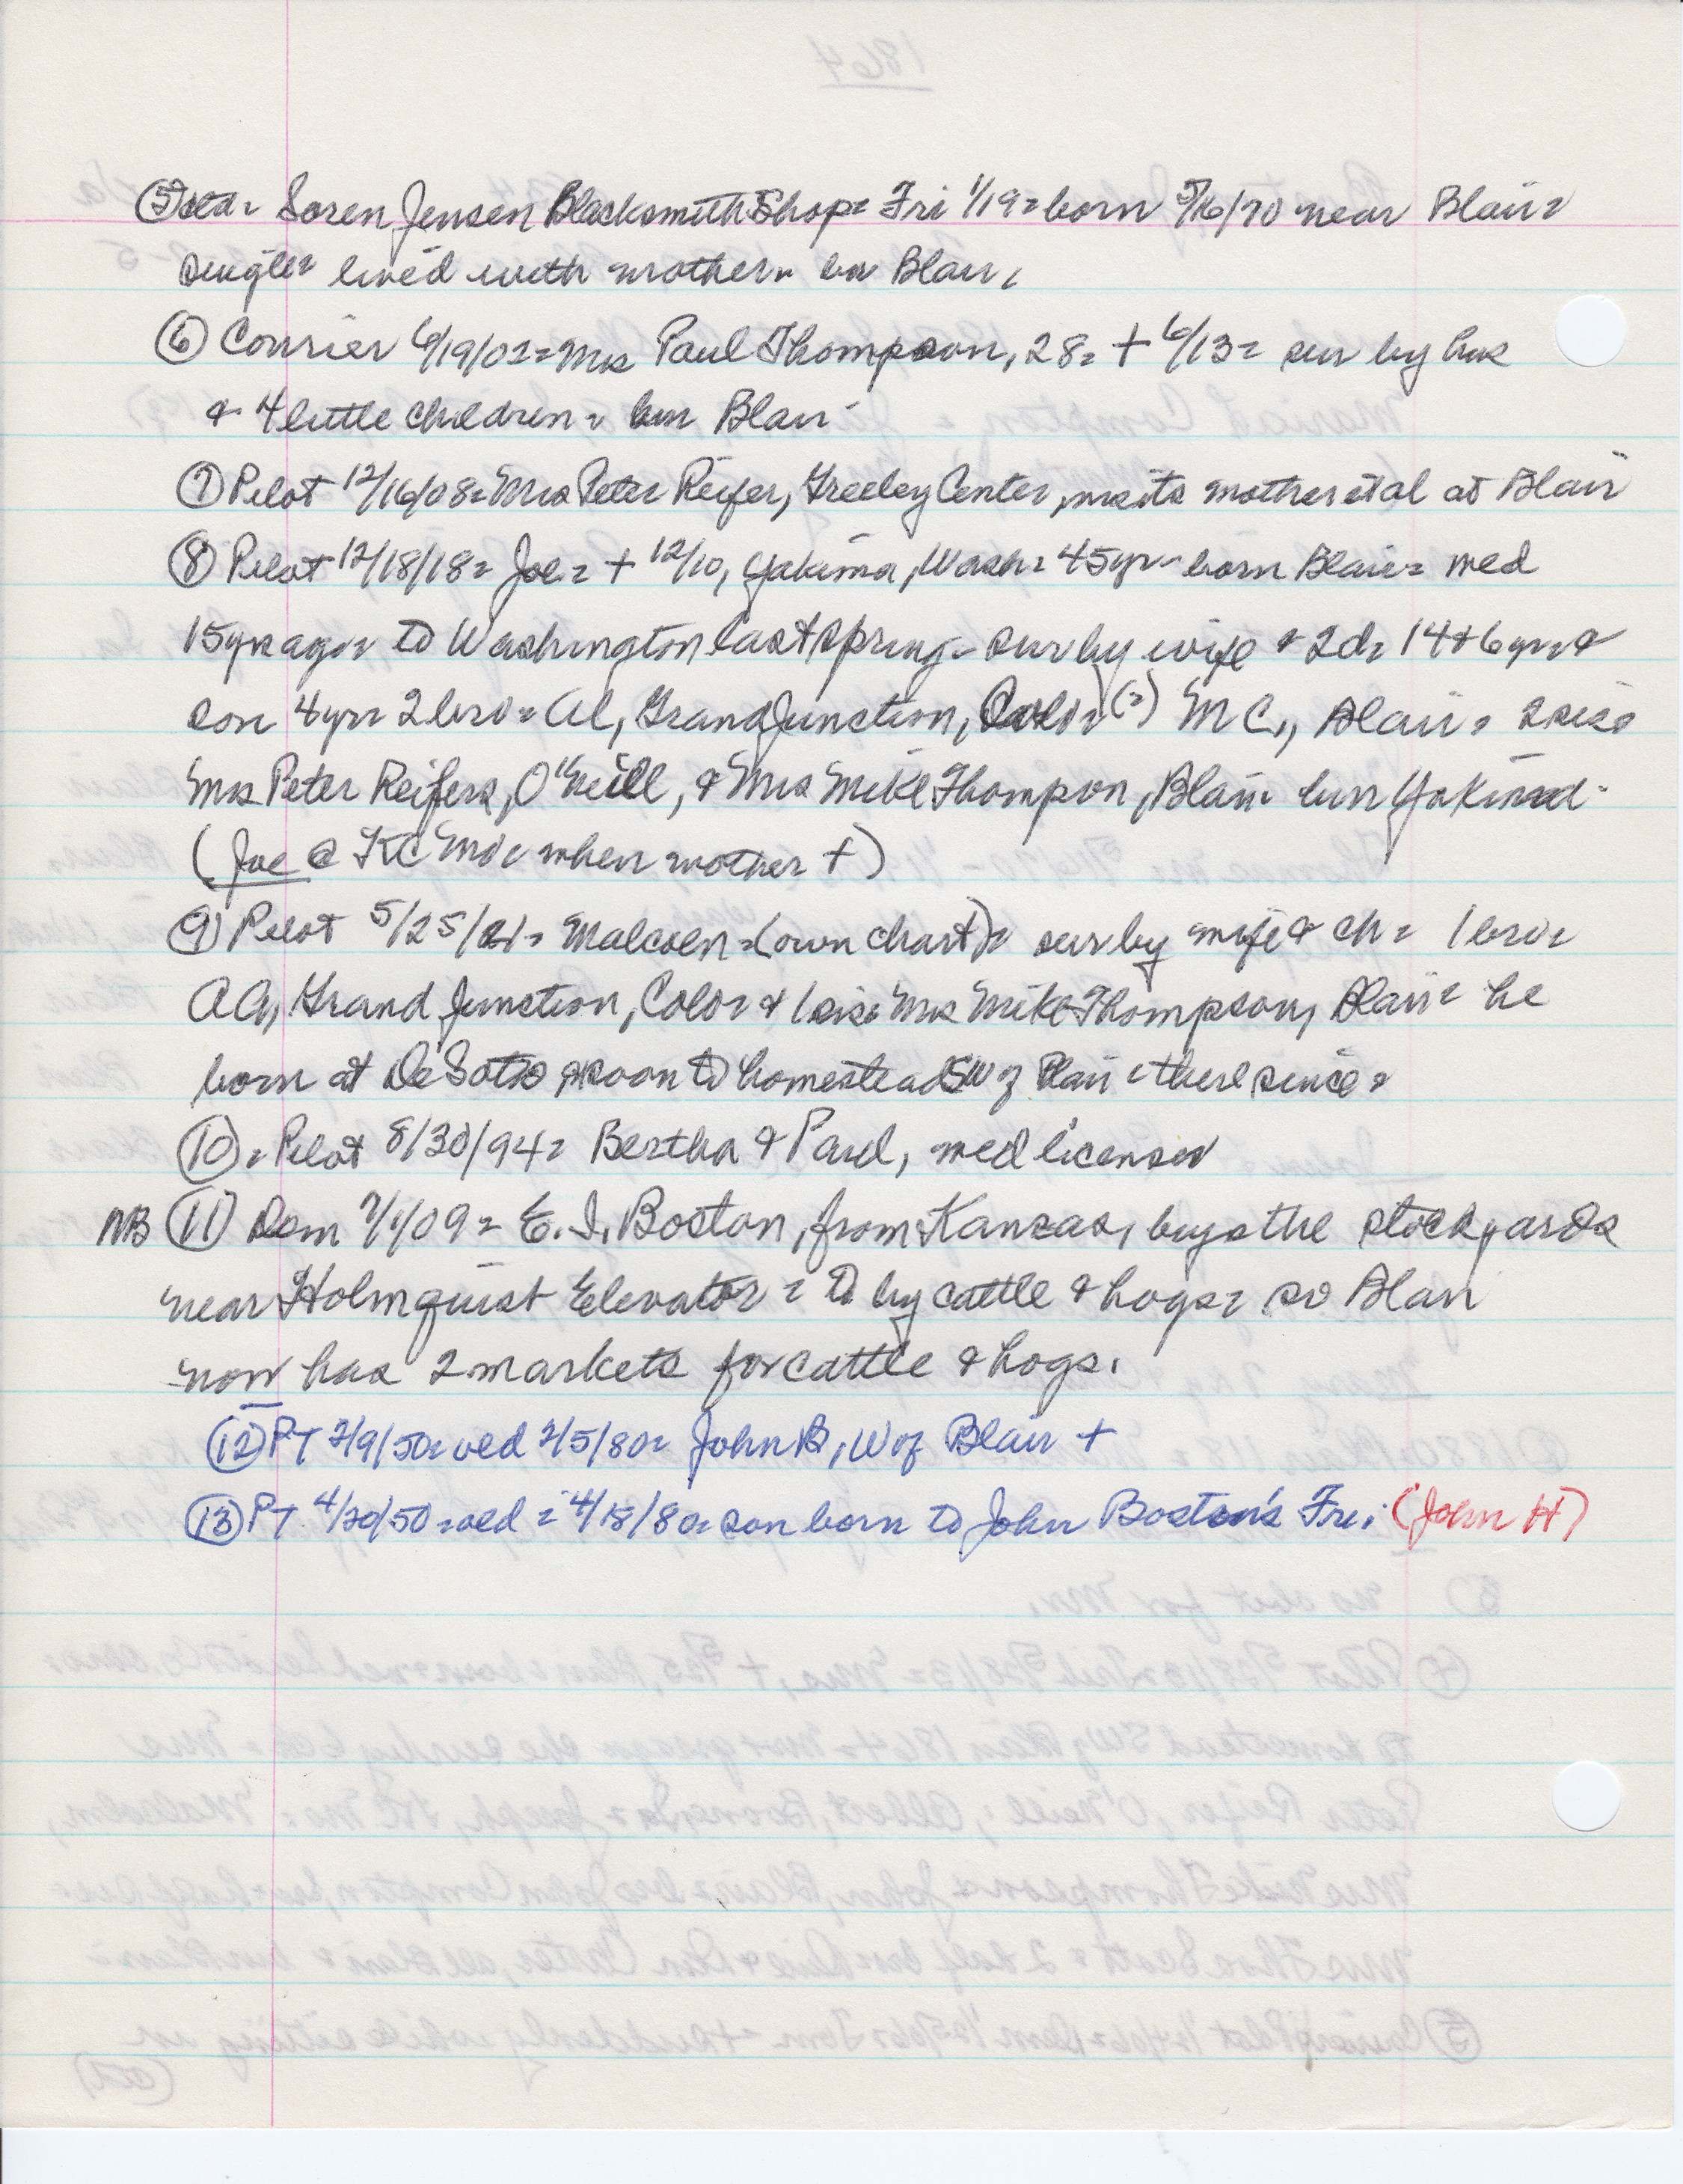 ⑤ctd= Soren Jensen Blacksmith Shop= Fri 1/19= born 5/16/70 near Blair=
single= lived with mother= bur Blair,
⑥ Courier 6/19/02= Mrs Paul Thompson, 28= + 6/13= sur by hus
& 4 little children= bur Blair-
⑦ Pilot 12/16/08= Mrs Peter Reifer, Greeley Center, visits mother etal at Blair
⑧ Pilot 12/18/18= Joe= + 12/10, Yakima, Wash= 45yr- born Blair= med
15yrs ago= to Washington last spring- sur by wife & 2d= 14+6yr= &
son 4yr= 2 bro= Al, Grand Junction, Colo= (=) M C., Blair= 2sis=
Mrs Peter Reifers, O'Neill, & Mrs Mike Thompson, Blair= bur Yakima-
(Joe @ KC Mo= when mother +)
⑨ Pilot 5/25/21= Malcolm= (own chart)= sur by wife & ch= 1bro=
AA, Grand Junction, Colo= & 1sis= Mrs Mike Thompson, Blair= he
born at DeSoto soon to homestead SW of Blair= there since=
⑩= Pilot 8/30/94= Bertha & Paul, med license
NB ⑪ Dem 7/1/09= E. I. Boston, from Kansas, buys the stockyards
near Holmquist Elevator= to by cattle & hogs= so Blair
now has 2 markets for cattle & hogs.
⑫ PT 2/9/50= old 2/5/80= John B, W of Blair +
⑬ PT 4/20/50= old= 4/15/80= son born to John Boston's Fri. (John H)